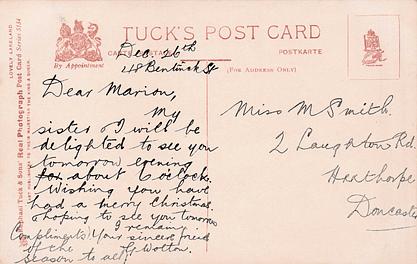 TUCK'S POST CARD
By Appointment
CARTE POSTALE
POSTKARTE
(FOR ADDRESS ONLY)
LOVELY LAKELAND
Raphael Tuck & Sons' Real Photograph Post Card Series 5134
Dec 26th
48 Bentinck St
Dear Marion,
My
sister & I will be
delighted to see you
tomorrow evening
for about 6 o'clock.
Wishing you have
had a merry Christmas.
& hoping to see you tomorrow
I remain
Your sincere friend
G Wotton.
Compliments
of the
season to all
Miss M Smith.
2 Laughton Rd.
Hexthorpe
Doncaster